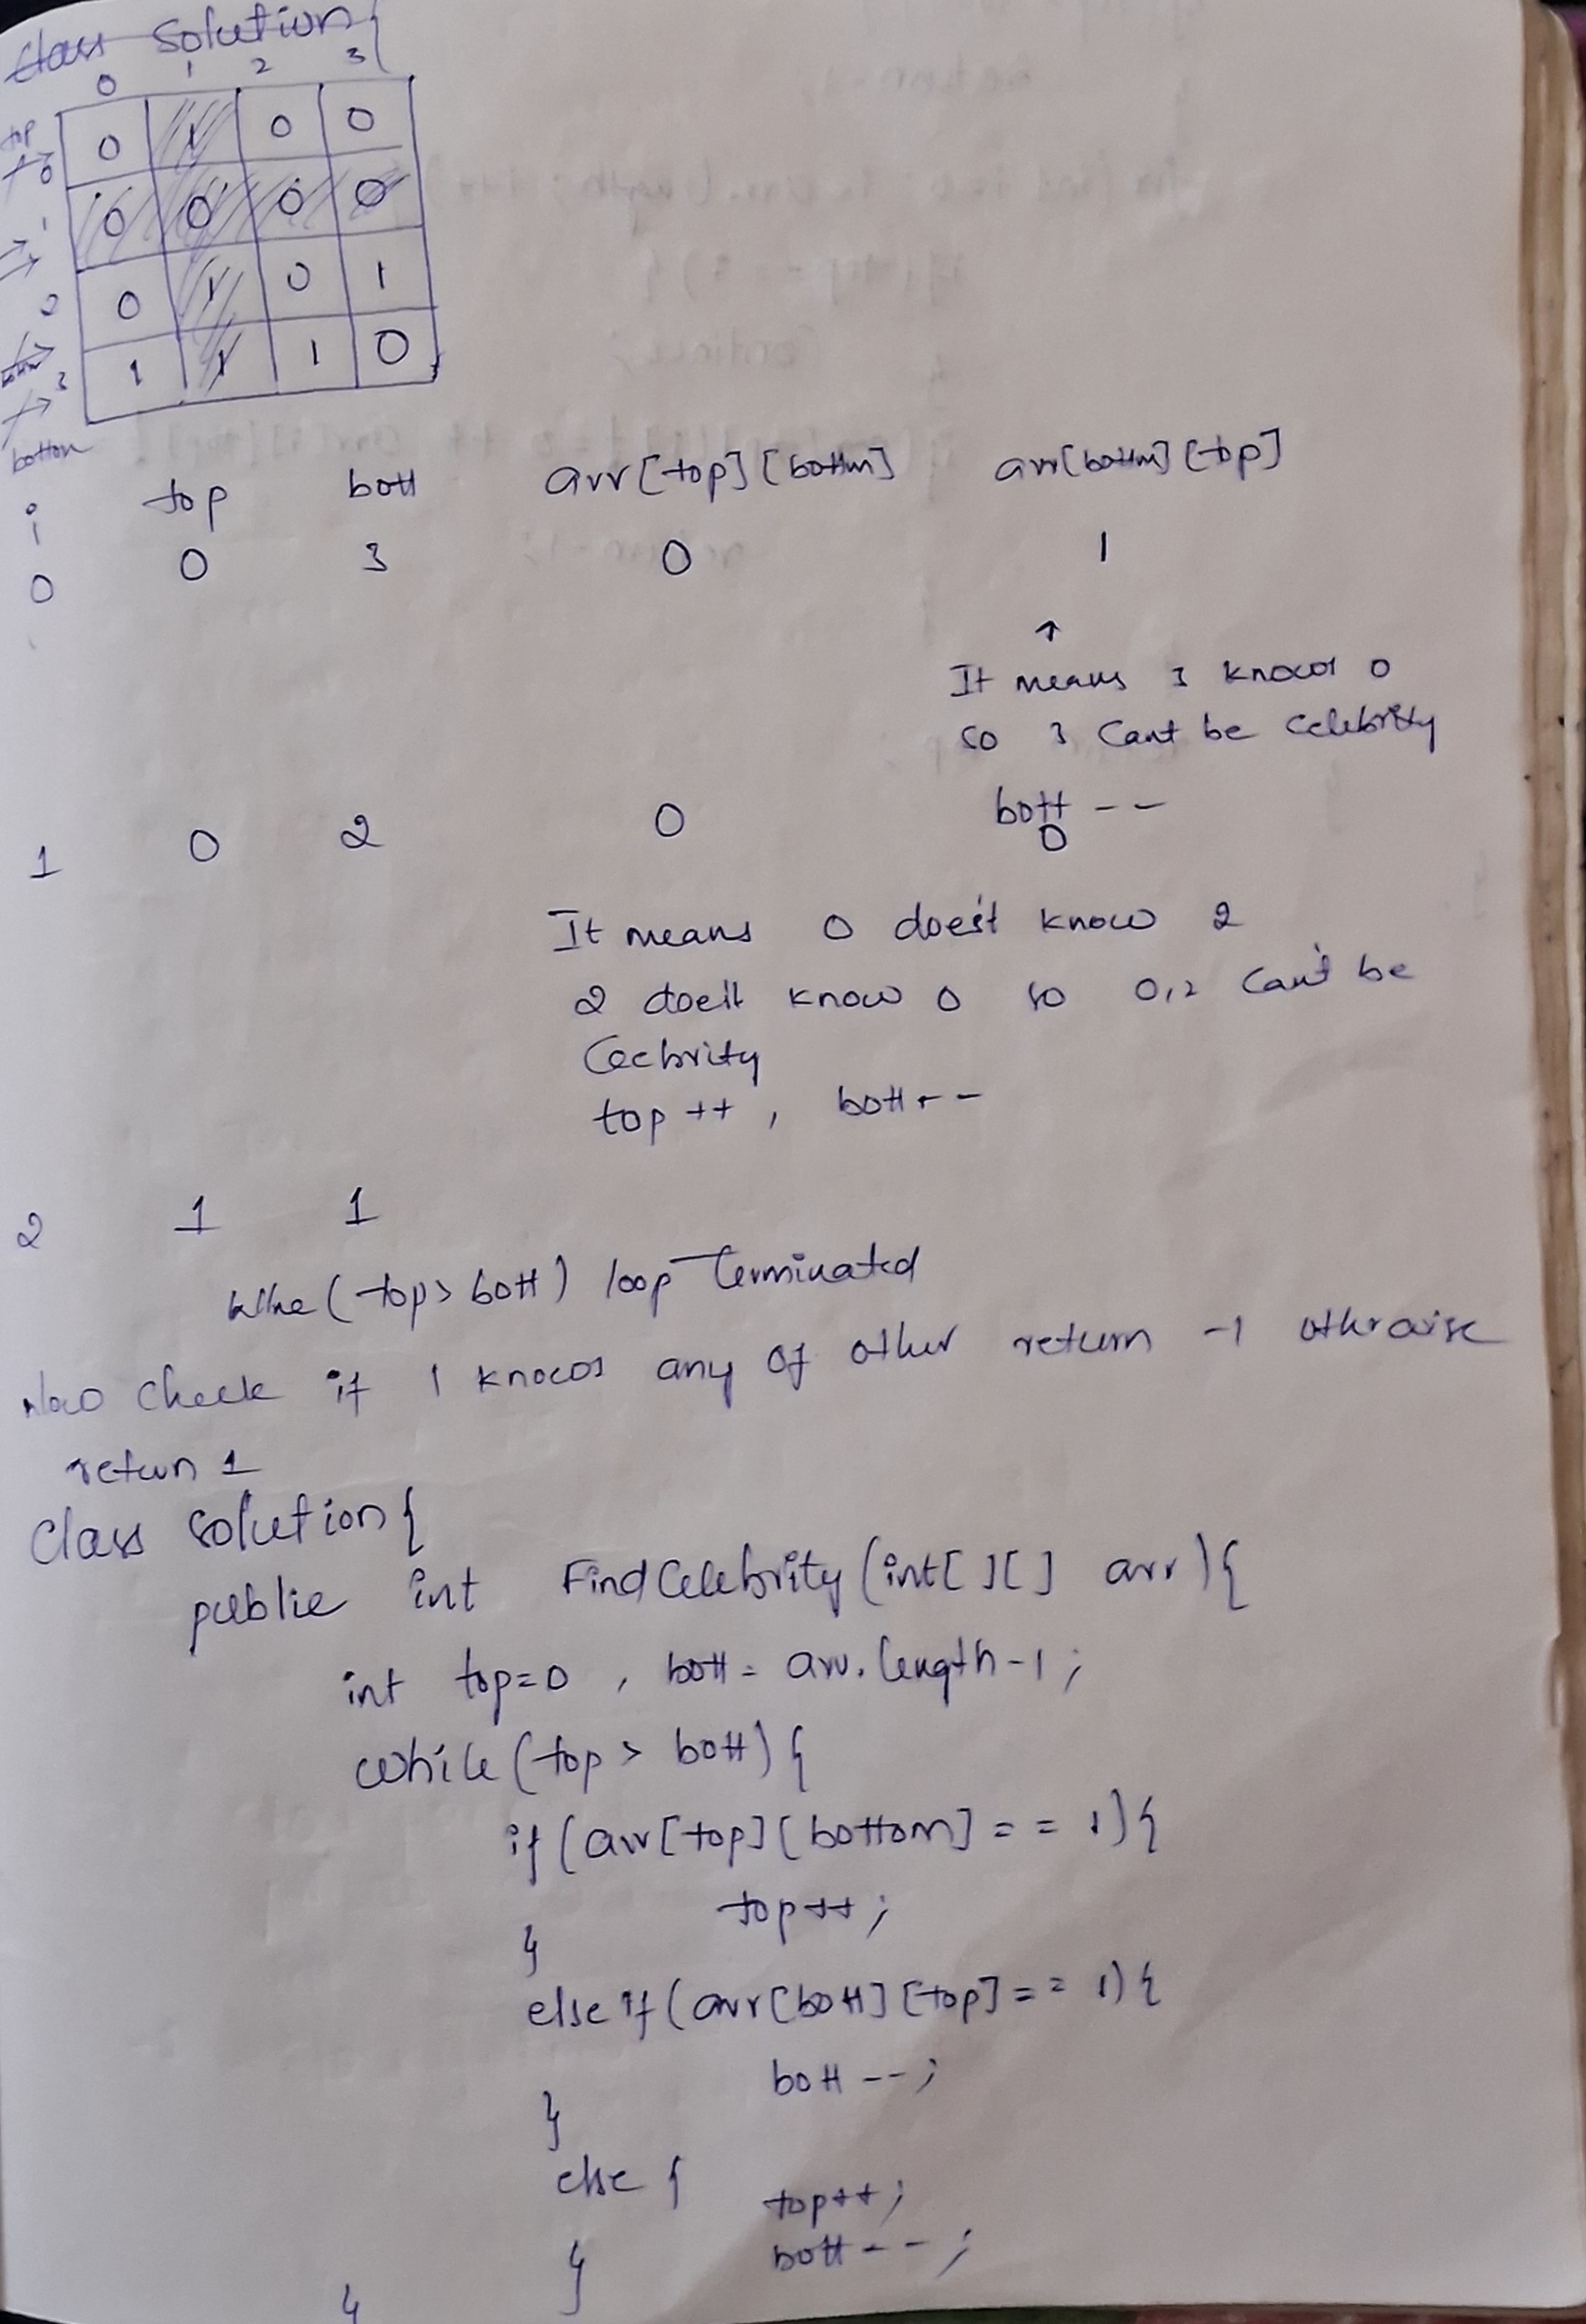 class Solution{
0 1 2 3
top
0 0 1 0 0
1 0 0 0 0
2 0 1 0 1
3 1 1 1 0
bottom
i top bott arr[top][bottm] arr[bottm][top]
0 0 3 0 1
↑
It means 3 knows 0
so 3 Cant be Celebrity
bott --
1 0 2 0 0
It means 0 does't know 2
2 does't know 0 so 0,2 Can't be
Cecbrity
top ++ , bott --
2 1 1
(top > bott) loop Terminated
Now check if 1 knows any of other return -1 otherwise
return 1
class Solution{
public int FindCelebrity(int[][] arr){
int top=0 , bott = arr.length-1;
while(top > bott){
if(arr[top][bottom] == 1){
top++;
}
else if(arr[bott][top] == 1){
bott --;
}
else {
top++;
bott --;
}
}